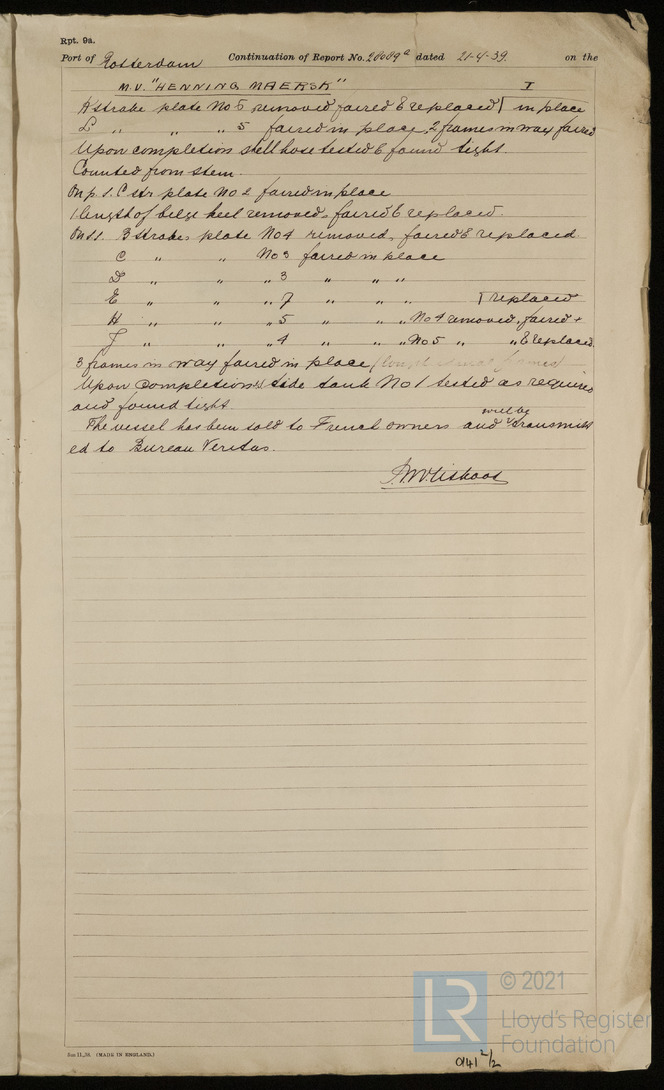 Rpt. 9a.
Port of Rotterdam Continuation of Report No. 20009a dated 21-4-39. on the
M.V. "HENNING MAERSK" I
H strake plate No 5 removed faired & replaced in place
L " " " 5 faired in place, 2 frames in way faired
Upon completion shell hose tested & found tight.
Counted from stem.
On p.s. C str plate No 2 faired in place
1 length of bilge keel removed, faired & replaced.
On s.s. B strake, plate No 4 removed, faired & replaced.
C " " No 3 faired in place
D " " " 3 " " "
E " " " 7 " " " replaced
H " " " 5 " " " No 4 removed, faired +
J " " " 4 " " " No 5 " " & replaced.
3 frames in way faired in place
Upon completion side tank No 1 tested as required
and found tight.
will be
The vessel has been sold to French owners and transmitt
ed to Bureau Veritas.
(MADE IN ENGLAND.)
LR © 2021
Lloyd's Register
Foundation
0141 2/2